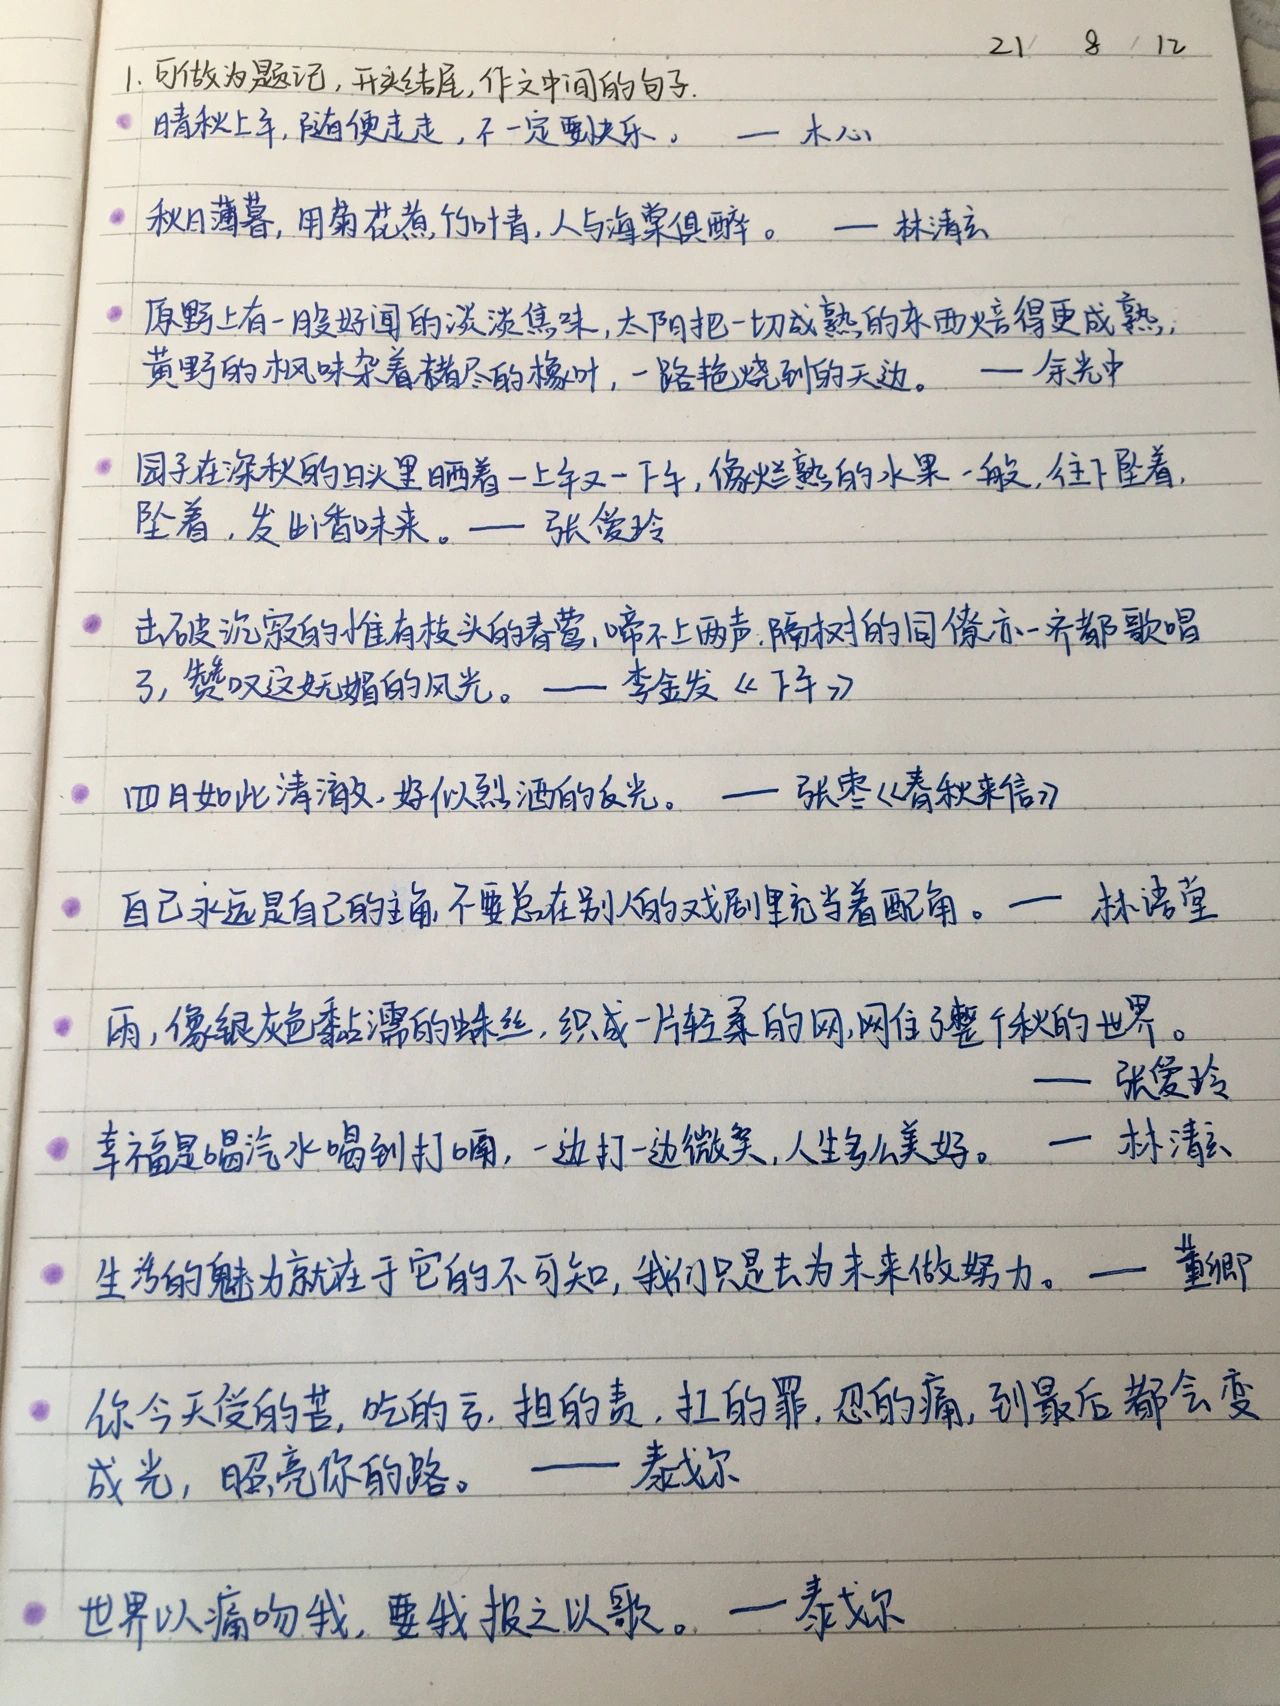 21/ 8 / 12
1. 可做为题记,开头结尾,作文中间的句子.
晴秋上午,随便走走,不一定要快乐。 — 木心
秋日薄暮,用菊花煮竹叶青,人与海棠俱醉。 — 林清玄
原野上有一股好闻的淡淡焦味,太阳把一切成熟的东西焙得更成熟,
黄野的枫味杂着褚尽的橡叶,一路艳烧到的天边。 — 余光中
园子在深秋的日头里晒着一上午又一下午,像烂熟的水果一般,往下坠着,
坠着,发出香味来。 — 张爱玲
击破沉寂的惟有枝头的春莺,啼不上两声,隔树的同僚亦一齐都歌唱
了,赞叹这妩媚的风光。 — 李金发《下午》
四月如此清澈,好似烈酒的反光。 — 张枣《春秋来信》
自己永远是自己的主角,不要总在别人的戏剧里充当着配角。 — 林语堂
雨,像银灰色黏濡的蛛丝,织成一片轻柔的网,网住了整个秋的世界。
— 张爱玲
幸福是喝汽水喝到打嗝,一边打一边微笑,人生多么美好。 — 林清玄
生活的魅力就在于它的不可知,我们只是去为未来做努力。 — 董卿
你今天受的苦,吃的亏,担的责,扛的罪,忍的痛,到最后都会变
成光,照亮你的路。 — 泰戈尔
世界以痛吻我,要我报之以歌。 — 泰戈尔